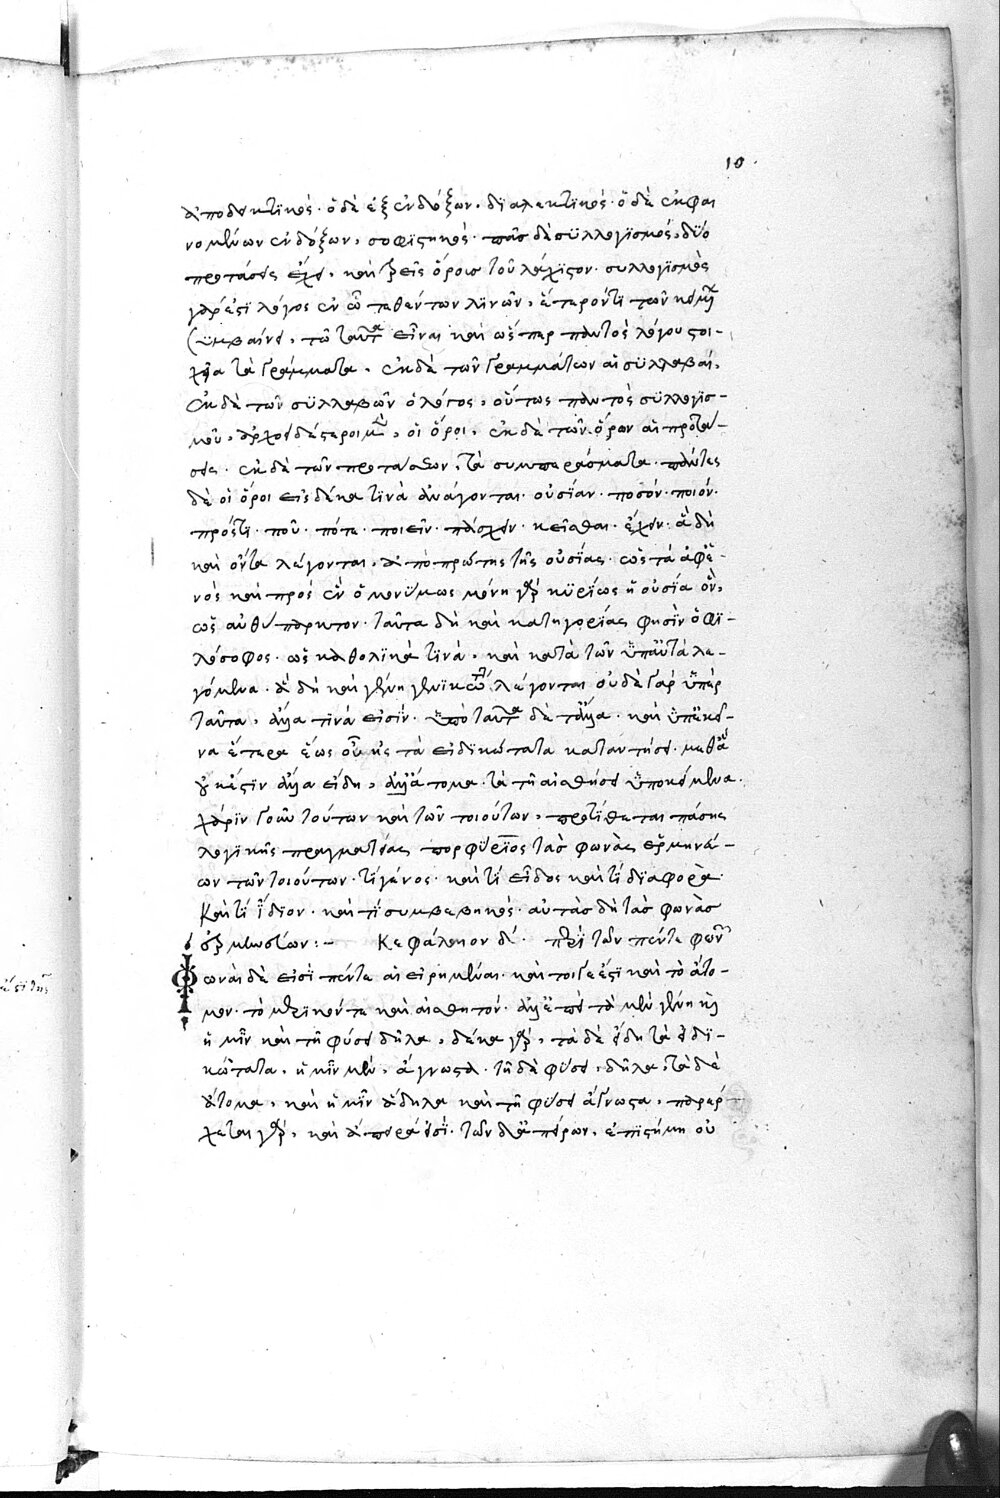 10.
ἀποδεικτικός· ὁ δὲ ἐξ ἐνδόξων, διαλεκτικός· ὁ δὲ ἐκ φαι
νομένων ἐνδόξων, σοφιστικός· πᾶς δὲ συλλογισμός, δύο
προτάσεις ἔχει, καὶ τρεῖς ὅρους τοὐλάχιστον· συλλογισμὸς
γάρ ἐστι λόγος ἐν ᾧ τεθέντων τινῶν, ἕτερόν τι τῶν κειμένων
συμβαίνει, τῷ ταῦτα εἶναι καὶ ὥσπερ παντὸς λόγου στοι-
χεῖα τὰ γράμματα, ἐκ δὲ τῶν γραμμάτων αἱ συλλαβαί,
ἐκ δὲ τῶν συλλαβῶν ὁ λόγος, οὕτως παντὸς συλλογισ-
μοῦ, ἀρχοειδέστεροι μὲν, οἱ ὅροι, ἐκ δὲ τῶν ὅρων αἱ προτά-
σεις· ἐκ δὲ τῶν προτάσεων, τὰ συμπεράσματα· πάντες
δὲ οἱ ὅροι εἰς δέκα τινὰ ἀνάγονται· οὐσίαν· ποσόν· ποιόν·
πρός τι· ποῦ· πότε· ποιεῖν· πάσχειν· κεῖσθαι· ἔχειν· ἃ δὴ
καὶ ὄντα λέγονται, ἀπὸ πρώτης τῆς οὐσίας· ὡς τὰ ἀφ' ἑ-
νὸς καὶ πρὸς ἓν ὁμωνύμως μόνη γὰρ κυρίως ἡ οὐσία ὂν,
ὡς αὐθύπαρκτον· ταῦτα δὴ καὶ κατηγορίας φησὶν ὁ φι-
λόσοφος· ὡς καθολικά τινα, καὶ κατὰ τῶν ὑπ' αὐτὰ λε-
γόμενα· ἃ δὴ καὶ γένη γενικώτατα λέγονται οὐδὲ γὰρ ὑπὲρ
ταῦτα, ἄλλα τινά εἰσιν· ὑπὸ ταῦτα δὲ τἆλλα· καὶ ὑπ' ἐκεῖ-
να ἕτερα ἕως οὗ εἰς τὰ εἰδικώτατα καταντήσει· μεθ' ἃ
οὐκ ἔστιν ἄλλα εἴδη, ἀλλ' ἄτομα· τὰ τῇ αἰσθήσει ὑποκείμενα·
χάριν γοῦν τούτων καὶ τῶν τοιούτων, προτίθεται πάσης
λογικῆς πραγματείας πορφύριος τὰς φωνὰς ἑρμηνεύ-
ων τῶν τοιούτων· τί γένος· καὶ τί εἶδος καὶ τί διαφορά·
καὶ τί ἴδιον· καὶ τί συμβεβηκός· αὐτὰς δὴ τὰς φωνὰς
ἑρμηνευτέον:— Κεφάλαιον δʹ· περὶ τῶν πέντε φωνῶν
Φωναὶ δὲ εἰσὶ πέντε αἱ εἰρημέναι· καὶ τοι γε ἐστὶ καὶ τὸ ἄτο-
μον· τὸ μερικόν τε καὶ αἰσθητόν· ἀλλ' ἐπεὶ τὰ μὲν γένη καὶ
ἡμῖν καὶ τῇ φύσει δῆλα, δέκα γὰρ, τὰ δὲ εἴδη τὰ εἰδι-
κώτατα, ἡμῖν μὲν, ἄγνωστα· τῇ δὲ φύσει, δῆλα, τὰ δὲ
ἄτομα, καὶ ἡμῖν ἄδηλα καὶ τῇ φύσει ἄγνωστα, παρέρ-
χεται γὰρ, καὶ ἄπειρά εἰσι· τῶν δὲ ἀπείρων, ἐπιστήμη οὐ